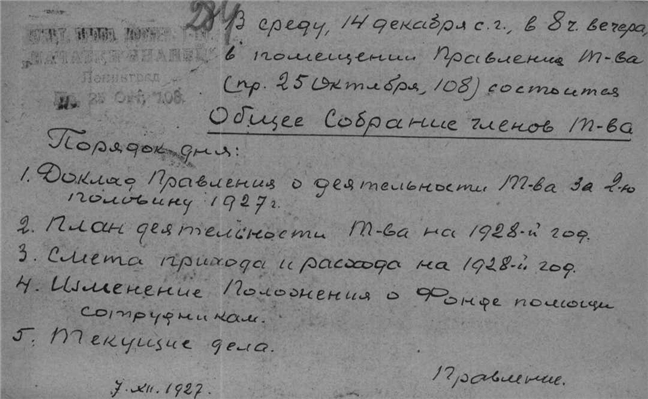 284
В среду, 14 декабря с.г., в 8 ч. вечера,
в помещении Правления Т-ва
(пр. 25 Октября, 108) состоится
Общее Собрание членов Т-ва
Ленинград
Пр. 25 Окт., 108.
Порядок дня:
1. Доклад Правления о деятельности Т-ва за 2-ю
половину 1927 г.
2. План деятельности Т-ва на 1928-й год.
3. Смета прихода и расхода на 1928-й год.
4. Изменение Положения о Фонде помощи
сотрудникам.
5. Текущие дела.
Правление.
7.XII.1927.